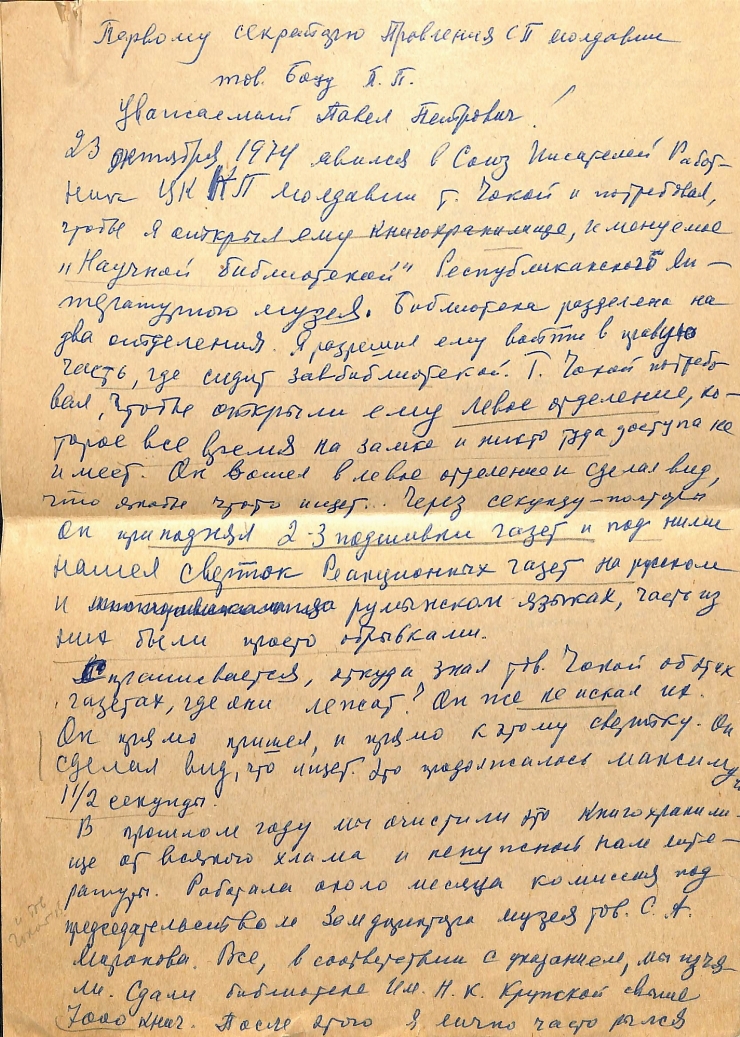 Первому секретарю Правления СП Молдавии
тов. Боцу П. П.
Уважаемый Павел Петрович!
23 октября 1974 явился в Союз Писателей Работ-
ник ЦК КП Молдавии т. Чокой и потребовал,
чтобы я открыл ему книгохранилище, именуемое
"Научной библиотекой" Республиканского Ли-
тературного музея. Библиотека разделена на
два отделения. Я разрешил ему войти в правую
часть, где сидит завбиблиотекой. Т. Чокой потребо-
вал, чтобы открыли ему левое отделение, ко-
торое все время на замке и никто туда доступа не
имеет. Он вошел в левое отделение и сделал вид,
что якобы что-то ищет... Через секунду-полторы
он приподнял 2-3 подшивки газет и под ними
нашел сверток Реакционных газет на русском
и румынском языках, часть из
них были просто обрывками.
Спрашивается, откуда знал тов. Чокой об этих
газетах, где они лежат? Он же не искал их.
Он прямо пришел, и прямо к этому свертку. Он
сделал вид, что ищет. Это продолжалось максимум
1 1/2 секунды.
В прошлом году мы очистили это книгохранили-
ще от всякого хлама и ненужной нам лите-
ратуры. Работала около месяца комиссия под
председательством Замдиректора музея тов. С. А.
Все, в соответствии с указанием, мы изъя-
ли. Сдали библиотеке Им. Н. К. Крупской свыше
7000 книг. После этого я лично часто рылся